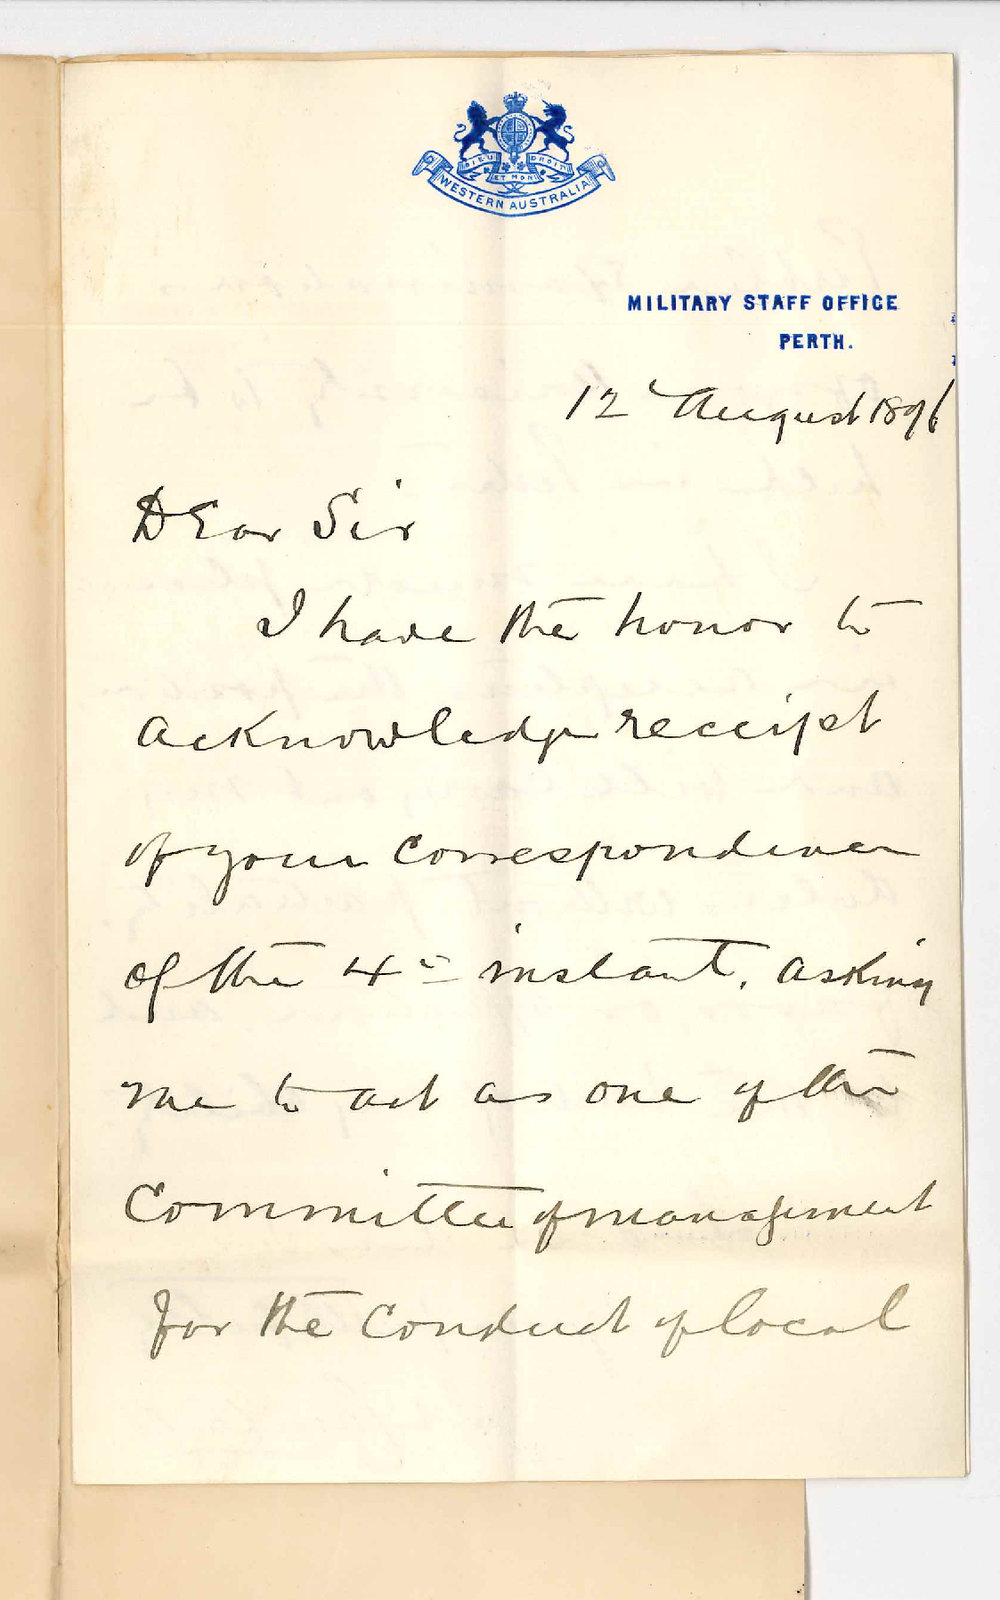 DIEU ET MON DROIT
WESTERN AUSTRALIA
MILITARY STAFF OFFICE
PERTH.
12 August 1896
Dear Sir
I have the honor to
acknowledge receipt
of your correspondence
of the 4th instant, asking
me to act as one of the
Committee of management
for the conduct of local